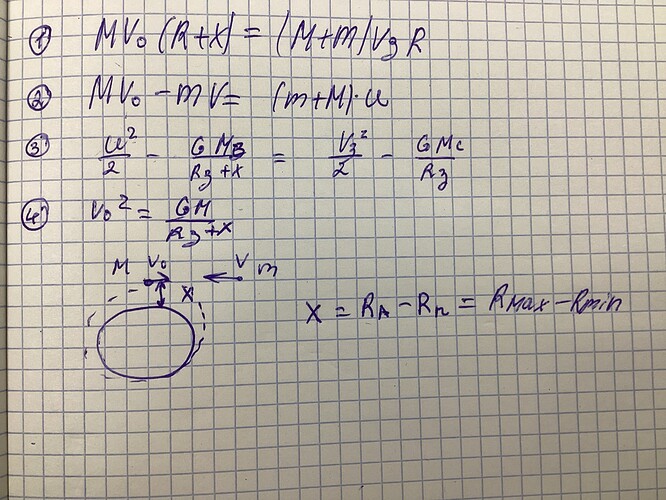 ① MV₀ (R+x) = (M+m)V₃ R
② MV₀ - mV = (m+M)·u
③ u²/2 - GM₃/(R₃+x) = V₃²/2 - GMc/R₃
④ V₀² = GM/(R₃+x)
M V₀ V m
x
x = R_A - R_п = Rмах - Rmin